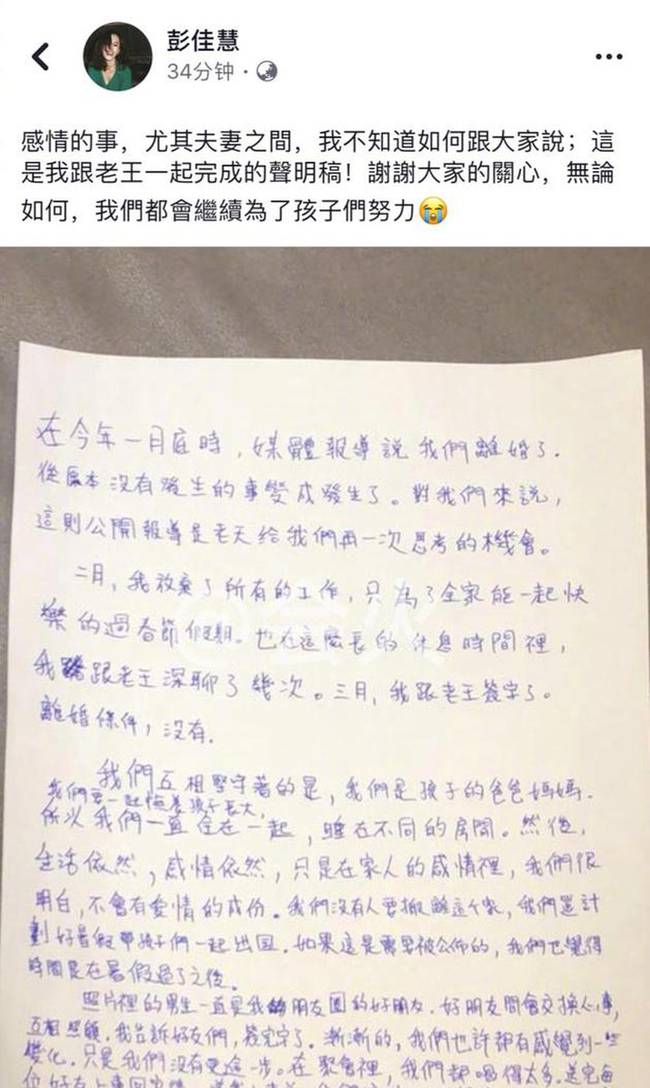 彭佳慧
34分钟 ·
感情的事，尤其夫妻之間，我不知道如何跟大家說；這
是我跟老王一起完成的聲明稿！謝謝大家的關心，無論
如何，我們都會繼續為了孩子們努力😭
在今年一月底時，媒體報導說我們離婚了.
從原本沒有發生的事變成發生了。對我們來說，
這則公開報導是老天給我們再一次思考的機會。
二月，我放棄了所有的工作，只為了全家能一起快
樂的過春節假期。也在這麼長的休息時間裡，
我跟老王深聊了幾次。三月，我跟老王簽字了。
離婚條件，沒有.
我們互相堅守著的是，我們是孩子的爸爸媽媽.
我們要一起陪養孩子長大，
所以我們一直住在一起，睡在不同的房間。然後，
生活依然，感情依然，只是在家人的感情裡，我們很
明白，不會有愛情的成份。我們沒有人要拋離這个家，我們還計
劃好暑假帶孩子們一起出国. 如果這是需要被公佈的，我們也覺得
時間是在暑假過了之後。
照片裡的男生一直是我朋友圈的好朋友. 好朋友間會交換心事，
互相照顧. 我告訴好友們，簽完字了. 漸漸的，我們也許都有感覺到一些
變化. 只是我們沒有更進一步。在聚會裡，我們都喝得太多，送完每
位好友上車回家